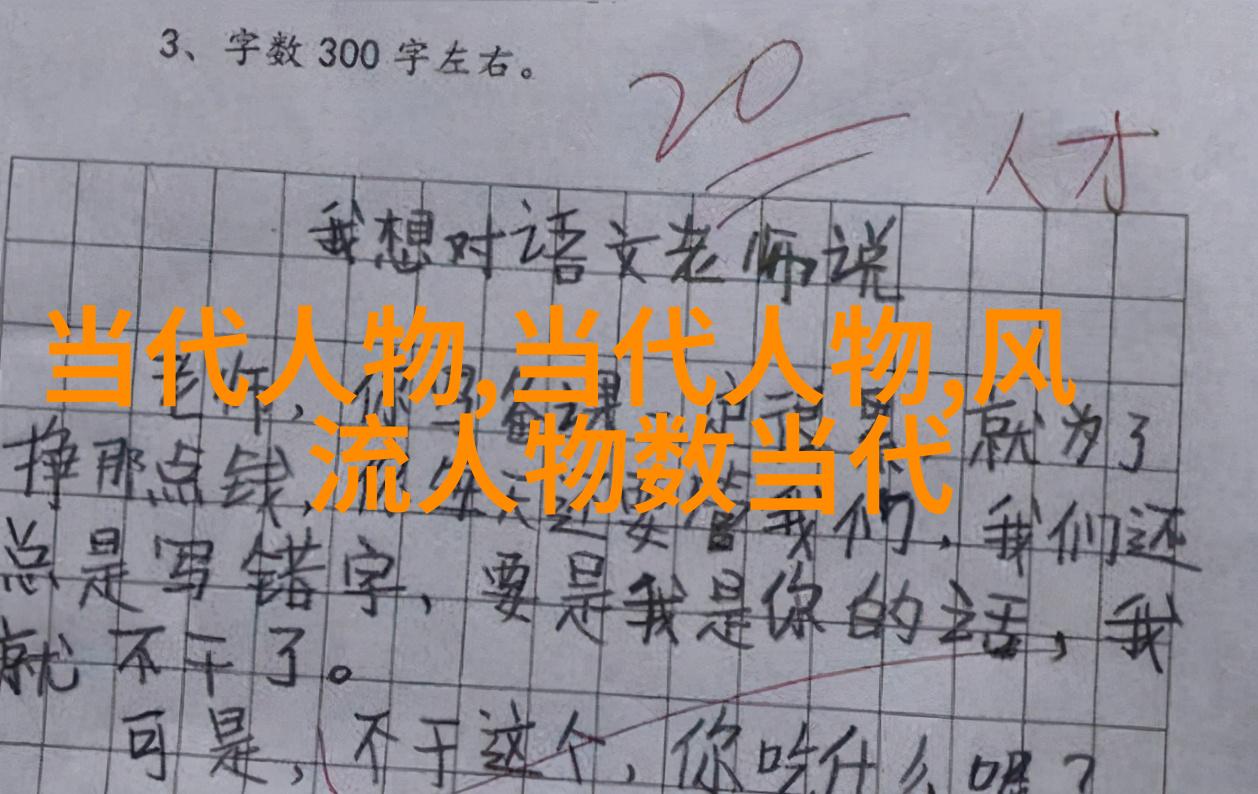 3、字数300字左右。
20
人才
我想对语文老师说
当代人物,当代人物,风
流人物数当代
老师,你 备课 就为了
挣那点钱, 我们,我们还
总是写错字,要是我是你的话,我
就不干了。
可是,不干这个,你吃什么呢?